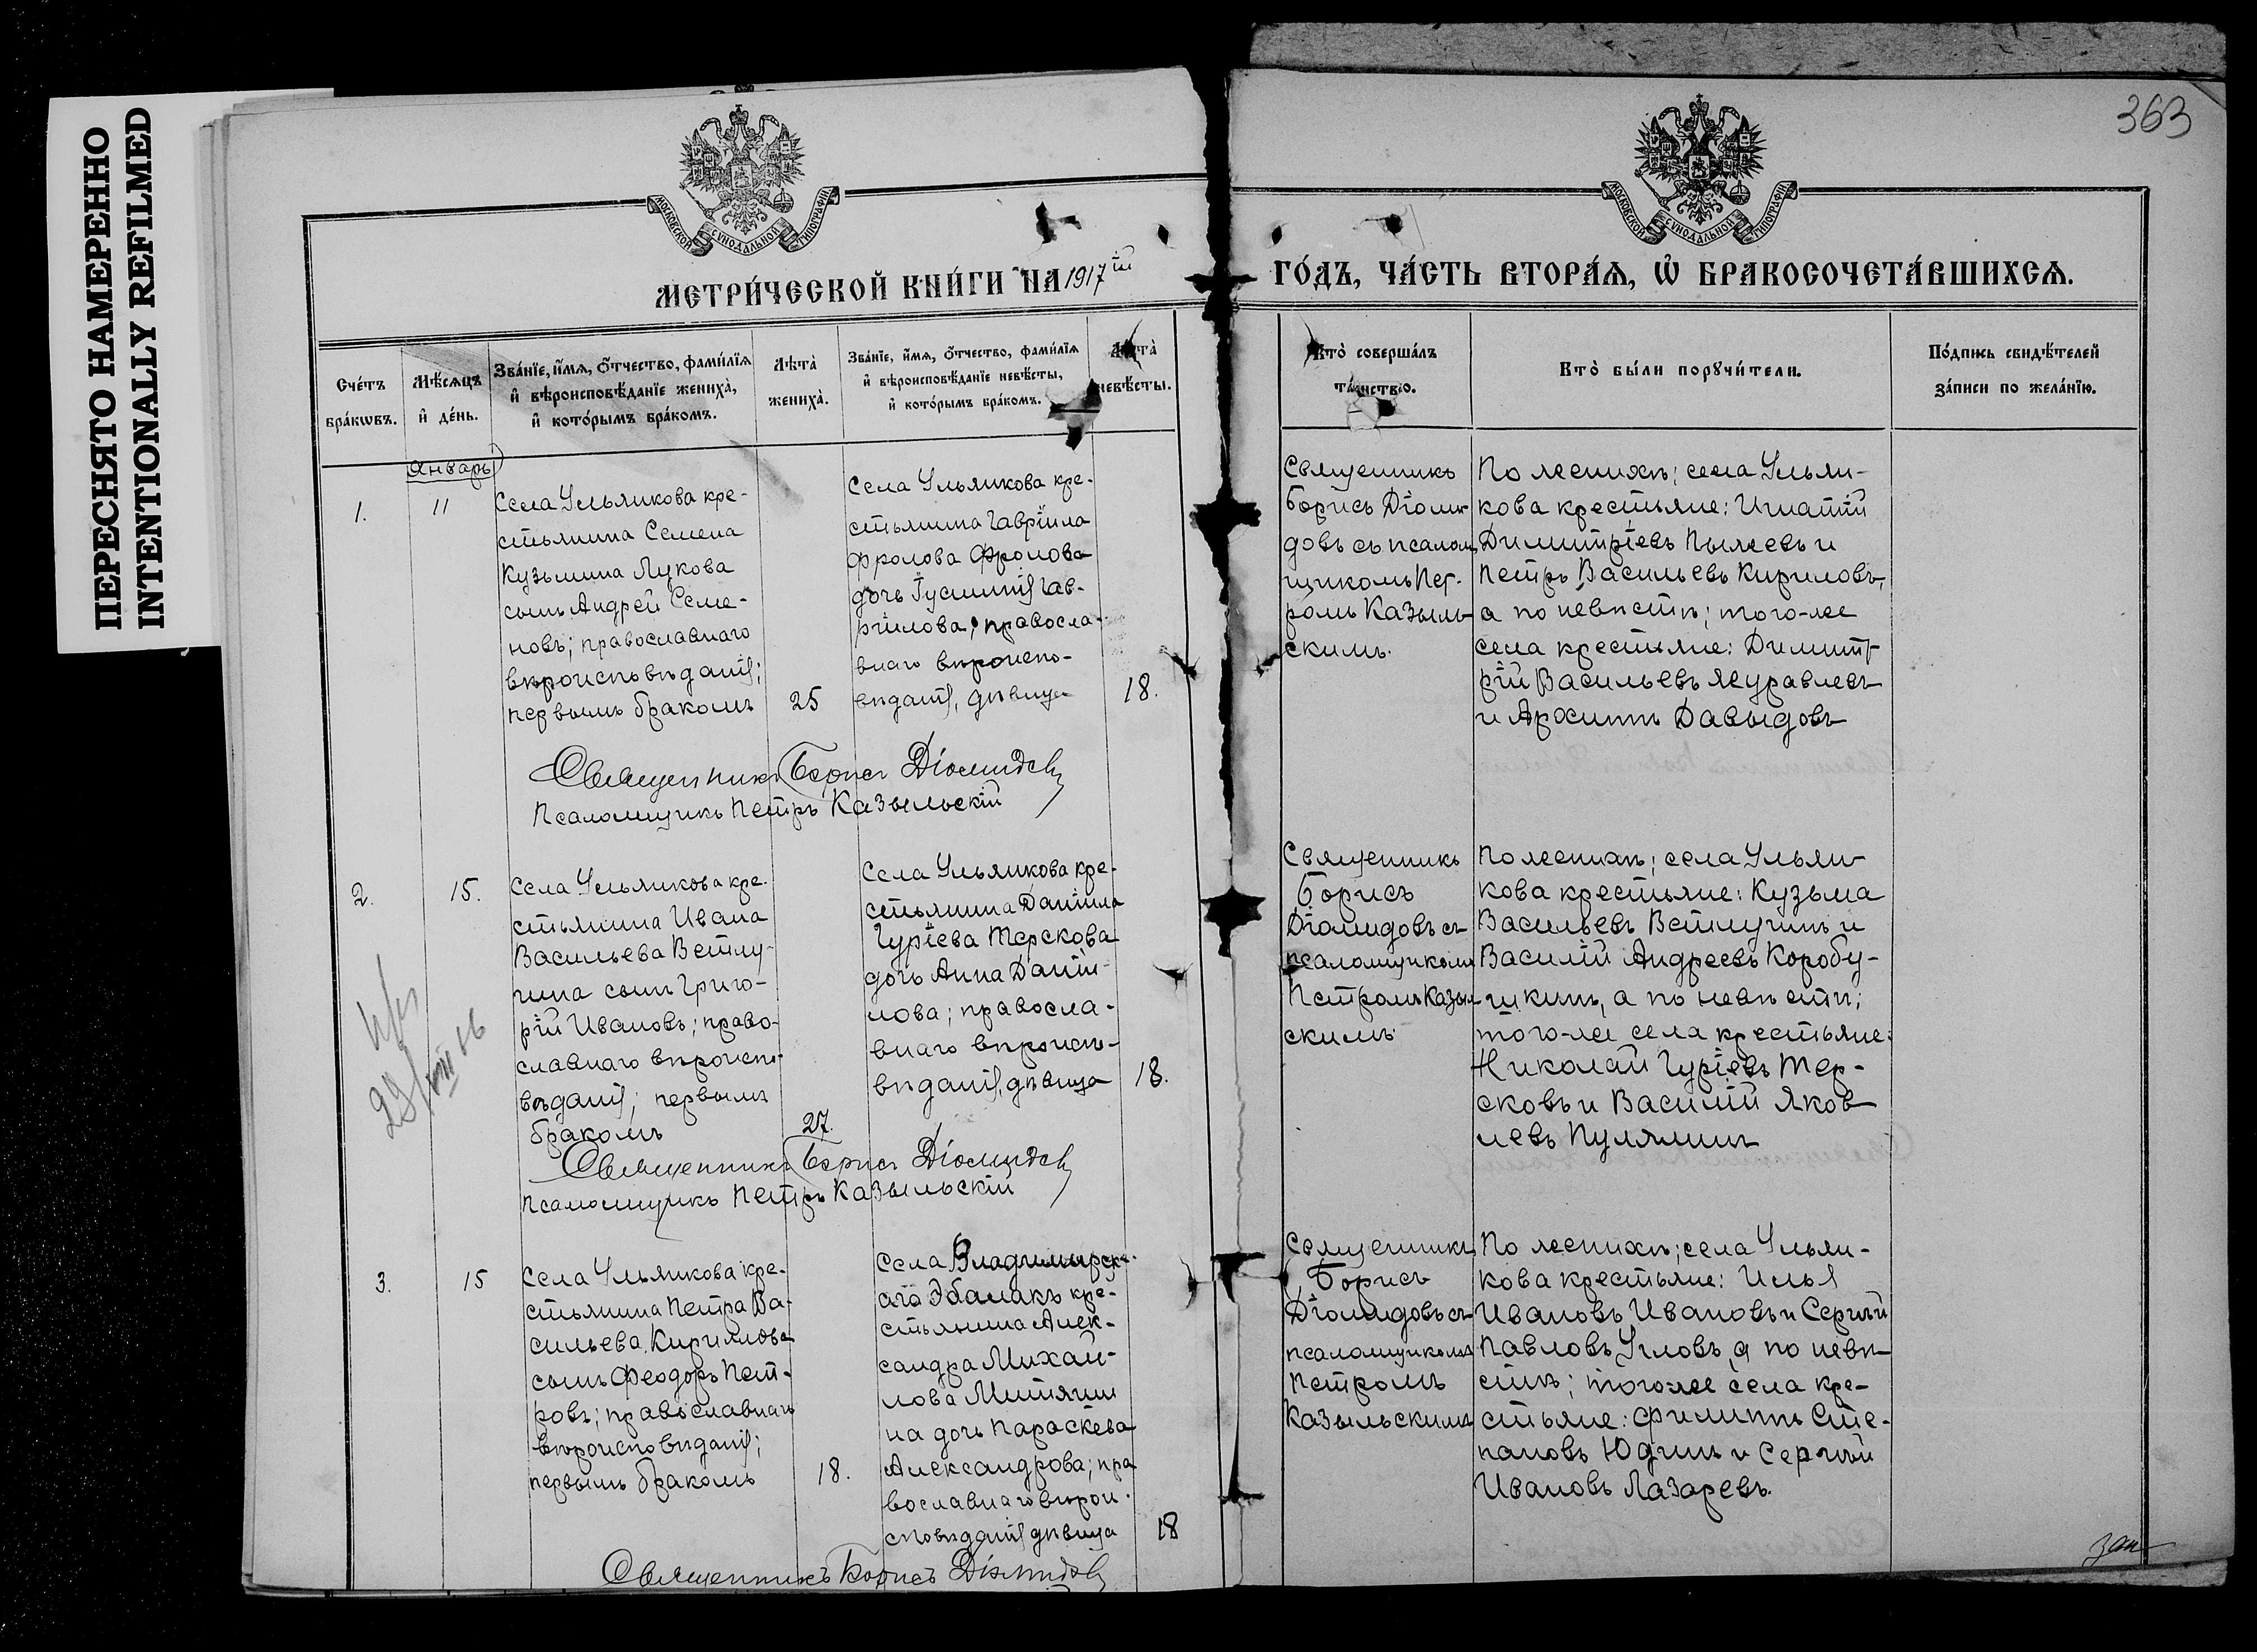 ПЕРЕСНЯТО НАМЕРЕННО
INTENTIONALLY REFILMED
363
МОСКОВСКОЙ СѴНОДАЛЬНОЙ ТИПОГРАФІИ
МОСКОВСКОЙ СѴНОДАЛЬНОЙ ТИПОГРАФІИ
МЕТРИ́ЧЕСКОЙ КНИ́ГИ НА 1917ій
ГО́ДЪ, ЧА́СТЬ ВТОРА́Ѧ, Ѡ҆ БРАКОСОЧЕТА́ВШИХСѦ.
Сче́тъ
бра́кѡвъ.
Мѣ́сяцъ
и҆ де́нь.
Зва́нїе, и҆́мѧ, ѻ҆́тчество, фами́лїѧ
и҆ вѣроисповѣ́данїе жениха̀,
и҆ кото́рымъ бра́комъ.
Лѣта̀
жениха̀.
Зва́нїе, и҆́мѧ, ѻ҆́тчество, фами́лїѧ
и҆ вѣроисповѣ́данїе невѣ́сты,
и҆ кото́рымъ бра́комъ.
Лѣта̀
невѣ́сты.
Кто̀ соверша́лъ
та́инство.
Кто̀ бы́ли порꙋчи́тели.
По́дпись свидѣ́телей
за́писи по жела́нїю.
Январь
1.
11
Села Ульянкова кре-
стьянина Семена
Кузьмина Лукова
сынъ Андрей Семе-
новъ; православнаго
вѣроисповѣданія;
первымъ бракомъ
25
Села Ульянкова кре-
стьянина Гавріила
Фролова Фролова
дочь Іустинія Гав-
ріилова; правосла-
внаго вѣроиспо-
вѣданія, дѣвица
18.
Священникъ
Борисъ Діоми-
довъ съ псалом
щикомъ Пет-
ромъ Казыль-
скимъ.
По женихѣ; села Ульян-
кова крестьяне: Игнатій
Димитріевъ Пыжевъ и
Петръ Васильевъ Кириловъ,
а по невѣстѣ; того-же
села крестьяне: Димит-
рій Васильевъ Журавлевъ
и Архиппъ Давыдовъ
Священникъ Борисъ Діомидовъ
Псаломщикъ Петръ Казыльскій
2.
15.
Села Ульянкова кре-
стьянина Ивана
Васильева Ветлу-
гина сынъ Григо-
рій Ивановъ; право-
славнаго вѣроиспо-
вѣданія; первымъ
бракомъ
27.
Села Ульянкова кре-
стьянина Даніила
Гуріева Терскова
дочь Анна Даніи-
лова; правосла-
внаго вѣроиспо-
вѣданія, дѣвица
18.
Священникъ
Борисъ
Діомидовъ съ
псаломщикомъ
Петромъ Казыл-
скимъ
По женихѣ; села Ульян-
кова крестьяне: Кузьма
Васильевъ Ветлугинъ и
Василій Андреевъ Коробу-
шкинъ, а по невѣстѣ;
того-же села крестьяне:
Николай Гуріевъ Тер-
сковъ и Василій Яков
левъ Пулялинъ
Священникъ Борисъ Діомидовъ
Псаломщикъ Петръ Казыльскій
3.
15
Села Ульянкова кре-
стьянина Петра Ва-
сильева Кириллова
сынъ Феодоръ Пет-
ровъ; православнаго
вѣроисповѣданія;
первымъ бракомъ
18.
Села Владимірск-
аго Эбалакъ кре-
стьянина Алек-
сандра Михаи-
лова Митяши
на дочь Параскева
Александрова; пра
вославнаго вѣрои-
сповѣданія дѣвица
18
Священникъ
Борисъ
Діомидовъ съ
псаломщикомъ
Петромъ
Казыльскимъ
По женихѣ; села Ульян-
кова крестьяне: Илья
Ивановъ Ивановъ и Сергѣй
Павловъ Угловъ, а по невѣ
стѣ; того же села кре-
стьяне: Филиппъ Сте-
пановъ Юдинъ и Сергѣй
Ивановъ Лазаревъ.
Священникъ Борисъ Діомидовъ